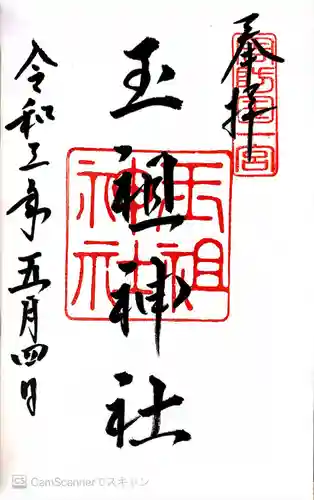 奉拝
周防國一宮
玉祖神社
玉祖神社
令和三年五月四日
CS CamScannerでスキャン